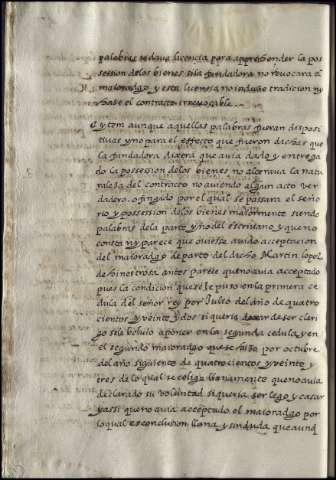 palabras se daua licencia para apprehender la pos
session de los bienes si la fundadora no reuocara el
maioradgo y esta licencia no induce tradicion ny
haze el contracto irreuocable.
Y ytem aunque aquellas palabras fueran disposi
tiuas y no para el effecto que fueron dichas que
la fundadora dixera que auia dado y entrega
do la possession de los bienes no alteraua la natu
raleza del contracto no auiendo algun acto ver
dadero o fingido por el qual se passara el seño
rio y possession de los bienes maiormente siendo
palabras de la parte y no del escriuano y que no
consta ny parece que ouiesse auido acceptacion
del maioradgo de parte del dicho Martin lopez
de hinestrosa antes parece que no auia acceptado
pues la condicion que se le puso en la primera ce
dula del señor rey por Julio del año de quatro
cientos y veinte y dos si queria dexar de ser cleri
go se la boluio a poner en la segunda cedula y en
el segundo maioradgo que se hizo por octubre
del año siguiente de quatrocientos y veinte y
tres de lo qual se colige llanamente que no auia
declarado su voluntad si queria ser lego y casar
y assi que no auia acceptado el maioradgo por
lo qual es conclusion llana y sin duda que aunq